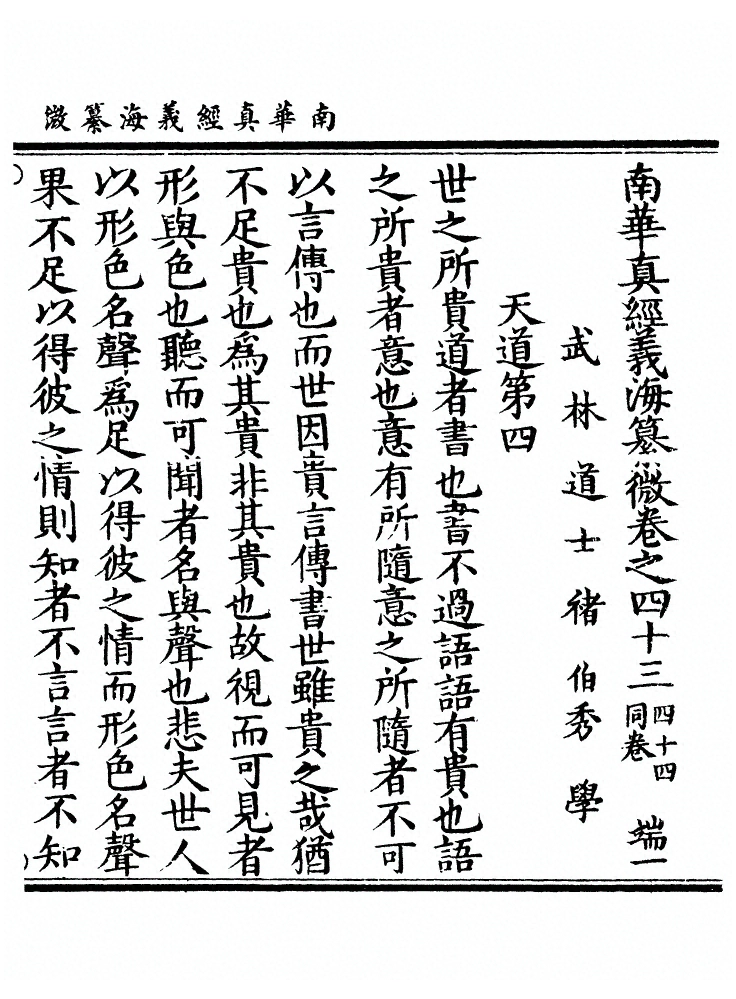 南華真經義海纂微
南華真經義海纂微卷之四十三 四十四同卷 端一
武林道士褚伯秀學
天道第四
世之所貴道者書也書不過語語有貴也語
之所貴者意也意有所隨意之所隨者不可
以言傳也而世因貴言傳書世雖貴之哉猶
不足貴也爲其貴非其貴也故視而可見者
形與色也聽而可聞者名與聲也悲夫世人
以形色名聲爲足以得彼之情而形色名聲
果不足以得彼之情則知者不言言者不知